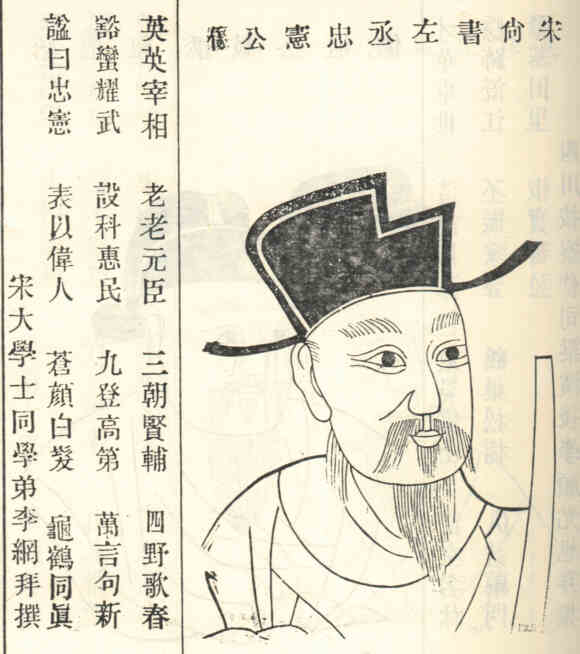 宋尚書左丞忠憲公像
英英宰相 老老元臣 三朝賢輔 四野歌春
豁蠻耀武 設科惠民 九登高第 萬言句新
謚曰忠憲 表以偉人 蒼顏白髮 龜鶴同眞
宋大學士同學弟李綱拜撰